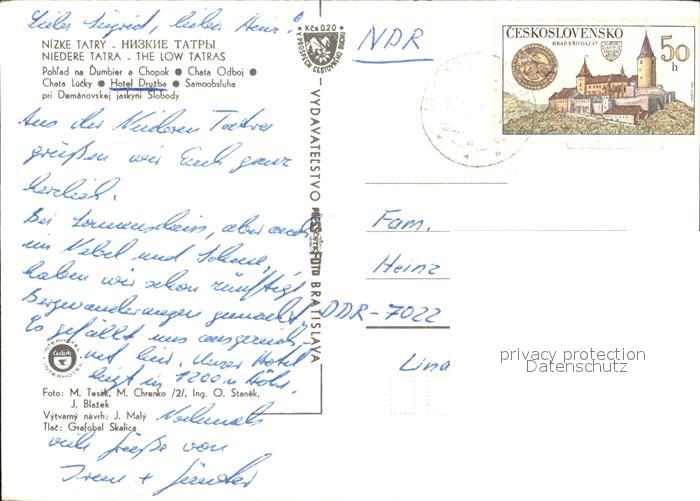 Liebe Sigrid, lieber Heinz!
NÍZKE TATRY - НИЗКИЕ ТАТРЫ
NIEDERE TATRA - THE LOW TATRAS
Pohľad na Ďumbier a Chopok ● Chata Odboj ●
Chata Lúčky ● Hotel Družba ● Samoobsluha
pri Demänovskej jaskyni Slobody
Aus der Niederen Tatra
grüßen wir Euch ganz
herzlich.
Bei Sonnenschein, aber auch
im Nebel und Schnee,
haben wir schon zünftige
Bergwanderungen gemacht.
Es gefällt uns ausgezeich-
net hier. Unser Hotel
liegt in 1200 m Höhe.
Foto: M. Tesák, M. Chrenko /2/, Ing. O. Staněk,
J. Blažek
Výtvarný návrh: J. Malý
Tlač: Grafobal Skalica
Nochmals
viele Grüße von
Irene + Günter
Kčs 0.20
V PROSPECH CESTOVNÉHO RUCHU
VYDAVATEĽSTVO PRESSFOTO BRATISLAVA
INTERHOTEL
INTERHOTEL
NDR
ČESKOSLOVENSKO
HRAD KŘIVOKLÁT
50
h
Fam.
Heinz
DDR-7022
Lina
privacy protection
Datenschutz